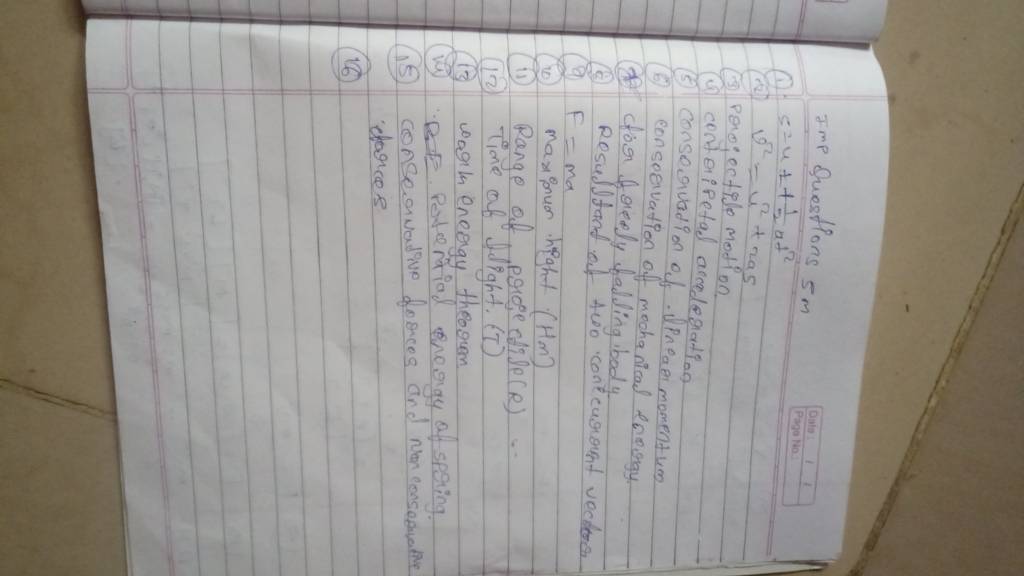 Imp Questions 5m
Date: / /
Page No.:
① s = u t + ½ at²
② v² = u² + 2as
③ Projectile motion
④ centeripetal accelegration
⑤ conservation of linear momentum
⑥ conservation of mechanical energy
⑦ for freely falling body
⑧ Resultant of two concurrent vectors
⑨ F = ma
⑩ maximum hight (Hm)
⑪ Range of projectile (R)
⑫ Time of flight. (T)
⑬ energy theorem
⑭ Potential energy of spring.
⑮ conservative forces and Non conservative
forces
⑯